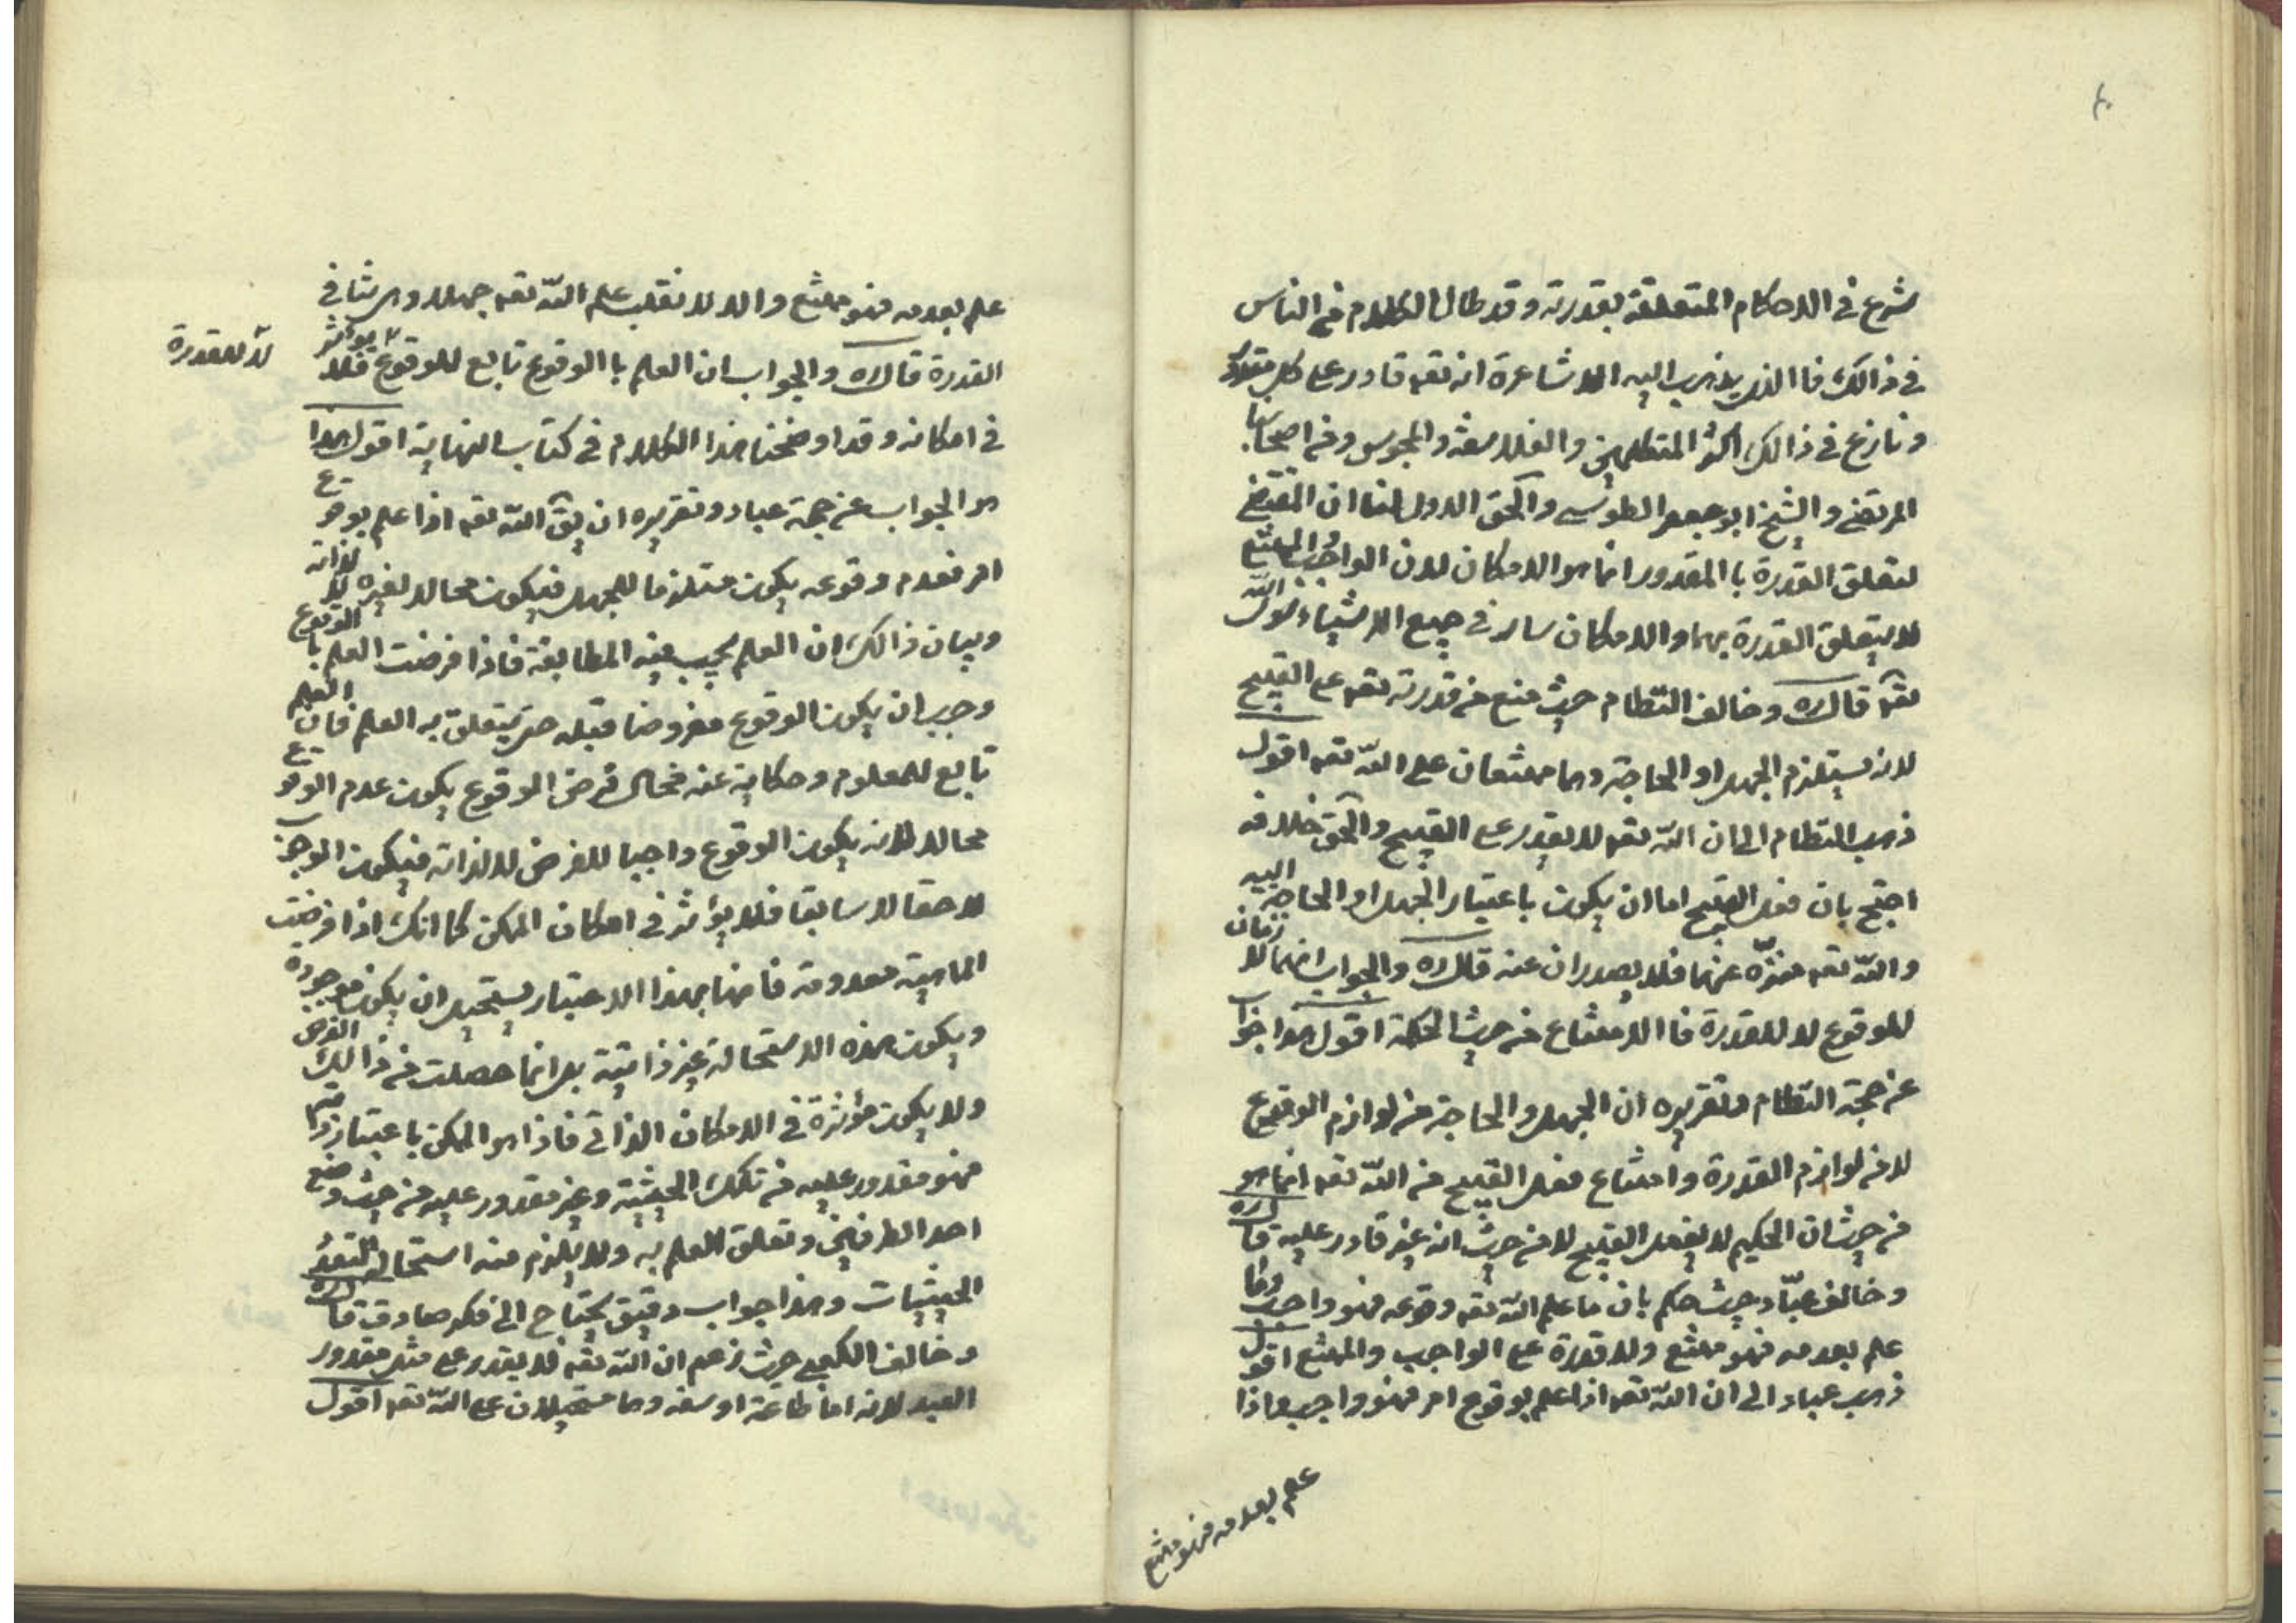 شرع في الاحكام المتعلقة بقدرته وقد طال الكلام من الناس
في ذالك فاالذي يذهب اليه الاشاعرة انه تعه قادر على كل مقدور
ونازع في ذالك اكثر المتكلمين والفلاسفة والمجوس ومن اصحابنا
المرتضى والشيخ ابو جعفر الطوسي والحق الاول لنا ان المقتضى
لتعلق القدرة باالمقدور انما هو الامكان لان الواجب والممتنع
لا يتعلق القدرة بهما والامكان سار في جميع الاشياء سوى الله
تعه قال ره وخالف النّظام حيث منع من قدرته تعه على القبيح
لانه يستلزم الجهل او الحاجة وهما ممتنعان على الله تعه اقول
ذهب النظام الى ان الله تعه لا يقدر على القبيح والحق خلافه
احتج بان فعل القبيح اما ان يكون باعتبار الجهل او الحاجة اليه
والله تعه منزّه عنهما فلا يصدران عنه قال ره والجواب انهما لازمان
للوقوع لا للقدرة فاالامتناع من حيث الحكمة اقول هذا جواب
عن حجة النّظام وتقريره ان الجهل والحاجة من لوازم الوقوع
لا من لوازم القدرة وامتناع فعل القبيح من الله تعه انما هو
من حيث ان الحكيم لا يفعل القبيح لا من حيث انه غير قادر عليه قال ره
وخالف عبّاد حيث حكم بان ما علم الله تعه وقوعه فهو واجب وما
علم بعدمه فهو ممتنع ولا قدرة على الواجب والممتنع اقول
ذهب عباد الى ان الله تعه اذا علم بوقوع امر فهو واجب واذا
علم بعدمه فهو ممتنع
علم بعدمه فهو ممتنع والا لانقلب علم الله تعه جهلا وهي تنافي
القدرة قال ره والجواب ان العلم باالوقوع تابع للوقوع فلا يوثر
لا للقدرة
في امكانه وقد اوضحنا هذا الكلام في كتاب النهاية اقول هذا
هو الجواب عن حجة عباد وتقريره ان يق الله تعه اذا علم بوقوع
امر فعدم وقوعه يكون مستلزما للجهل فيكون محالا لغيره لا لذاته
وبيان ذالك ان العلم يجب فيه المطابقة فاذا فرضت العلم باالوقوع
وجب ان يكون الوقوع مفروضا قبله حتى يتعلق به العلم فان العلم
تابع للمعلوم وحكاية عنه فحال فرض الوقوع يكون عدم الوقوع
محالا لانه يكون الوقوع واجبا للفرض لا لذاته فيكون الوجوب
لاحقا لا سابقا فلا يؤثر في امكان الممكن كما انك اذا فرضت
الماهية معدومة فانها بهذا الاعتبار يستحيل ان يكون موجودة
ويكون هذه الاستحالة غير ذاتية بل انما حصلت من ذالك الفرض
ولا يكون مؤثرة في الامكان الذاتي فاذا هو الممكن باعتبار ذاته
فهو مقدور عليه من تلك الحيثية وغير مقدور عليه من حيث وضع
احد الطرفين وتعلق العلم به ولا يلزم منه استحالة لتعدد
الحيثيات وهذا جواب دقيق يحتاج الى فكر صادق قال ره
وخالف الكعبي حيث زعم ان الله تعه لا يقدر على مثل مقدور
العبد لانه اما طاعة او سفه وهما مستحيلان على الله تعه اقول